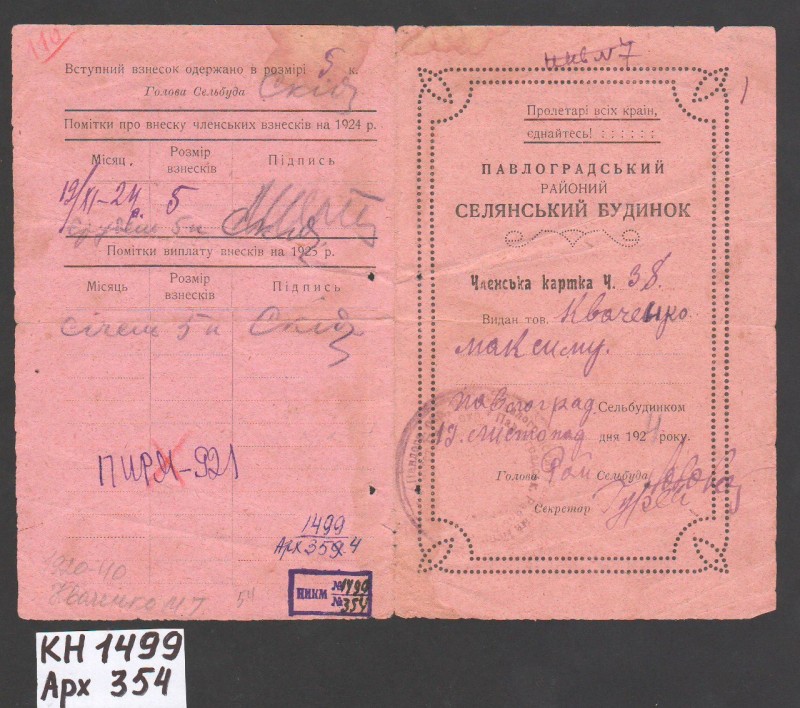 110
Вступний взнесок одержано в розмірі 5 к.
Голова Сельбуда
Помітки про внеску членських взнесків на 1924 р.
Місяц. Розмір взнесків Підпись
19/XI-24 5
грудень 5 к
Помітки виплату внесків на 1925 р.
Місяць Розмір взнесків Підпись
січень 5 к
ПИРМ-921
1499
Арх 359.4
Кваченко М. Т. 54
ПІКМ №1499
№354
КН 1499
Арх 354
инв №7
1
Пролетарі всіх країн,
єднайтесь! : : : : : :
ПАВЛОГРАДСЬКИЙ
РАЙОНИЙ
СЕЛЯНСЬКИЙ БУДИНОК
Членська картка Ч. 38.
Видан тов. Кваченко
Максиму.
Павлоград. Сельбудинком
19 Листопад дня 1924 року.
Голова Рай Сельбуда
Секретар